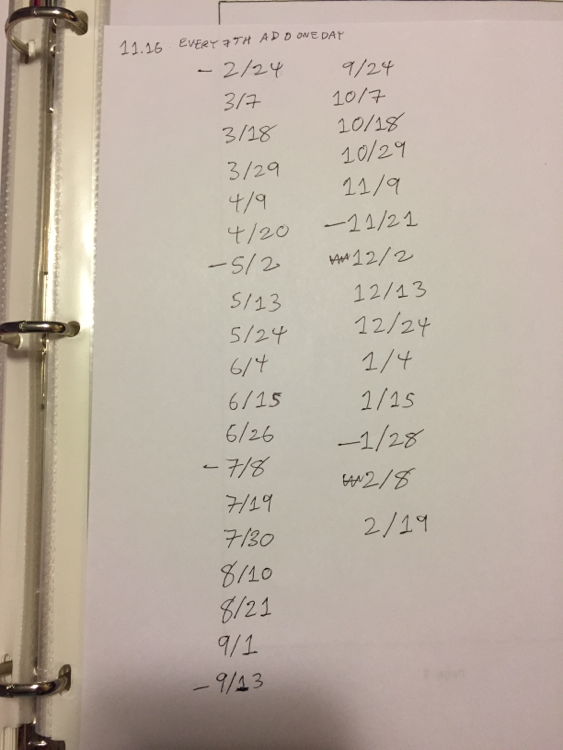 11.16 EVERY 7TH ADD ONE DAY
- 2/24
3/7
3/18
3/29
4/9
4/20
- 5/2
5/13
5/24
6/4
6/15
6/26
- 7/8
7/19
7/30
8/10
8/21
9/1
- 9/13
9/24
10/7
10/18
10/29
11/9
- 11/21
12/2
12/13
12/24
1/4
1/15
- 1/28
2/8
2/19